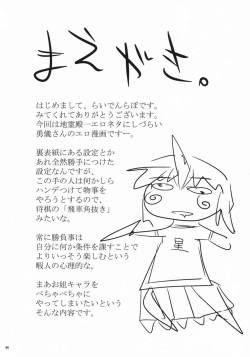 まえがき。
はじめまして、らいでんらぼです。
みてくれてありがとうございます。
今回は地霊殿一エロネタにしづらい
勇儀さんのエロ漫画ですー。
裏表紙にある設定とか
あれ全然勝手につけた
設定なんですが、
この手の人は何かしら
ハンデつけて物事を
やろうとするので、
将棋の「飛車角抜き」
みたいな。
常に勝負事は
自分に何か条件を課すことで
よりいっそう楽しむという
暇人の心理的な。
まあお姐キャラを
べちゃべちゃに
やってしまいたいという
そんな内容です。
星